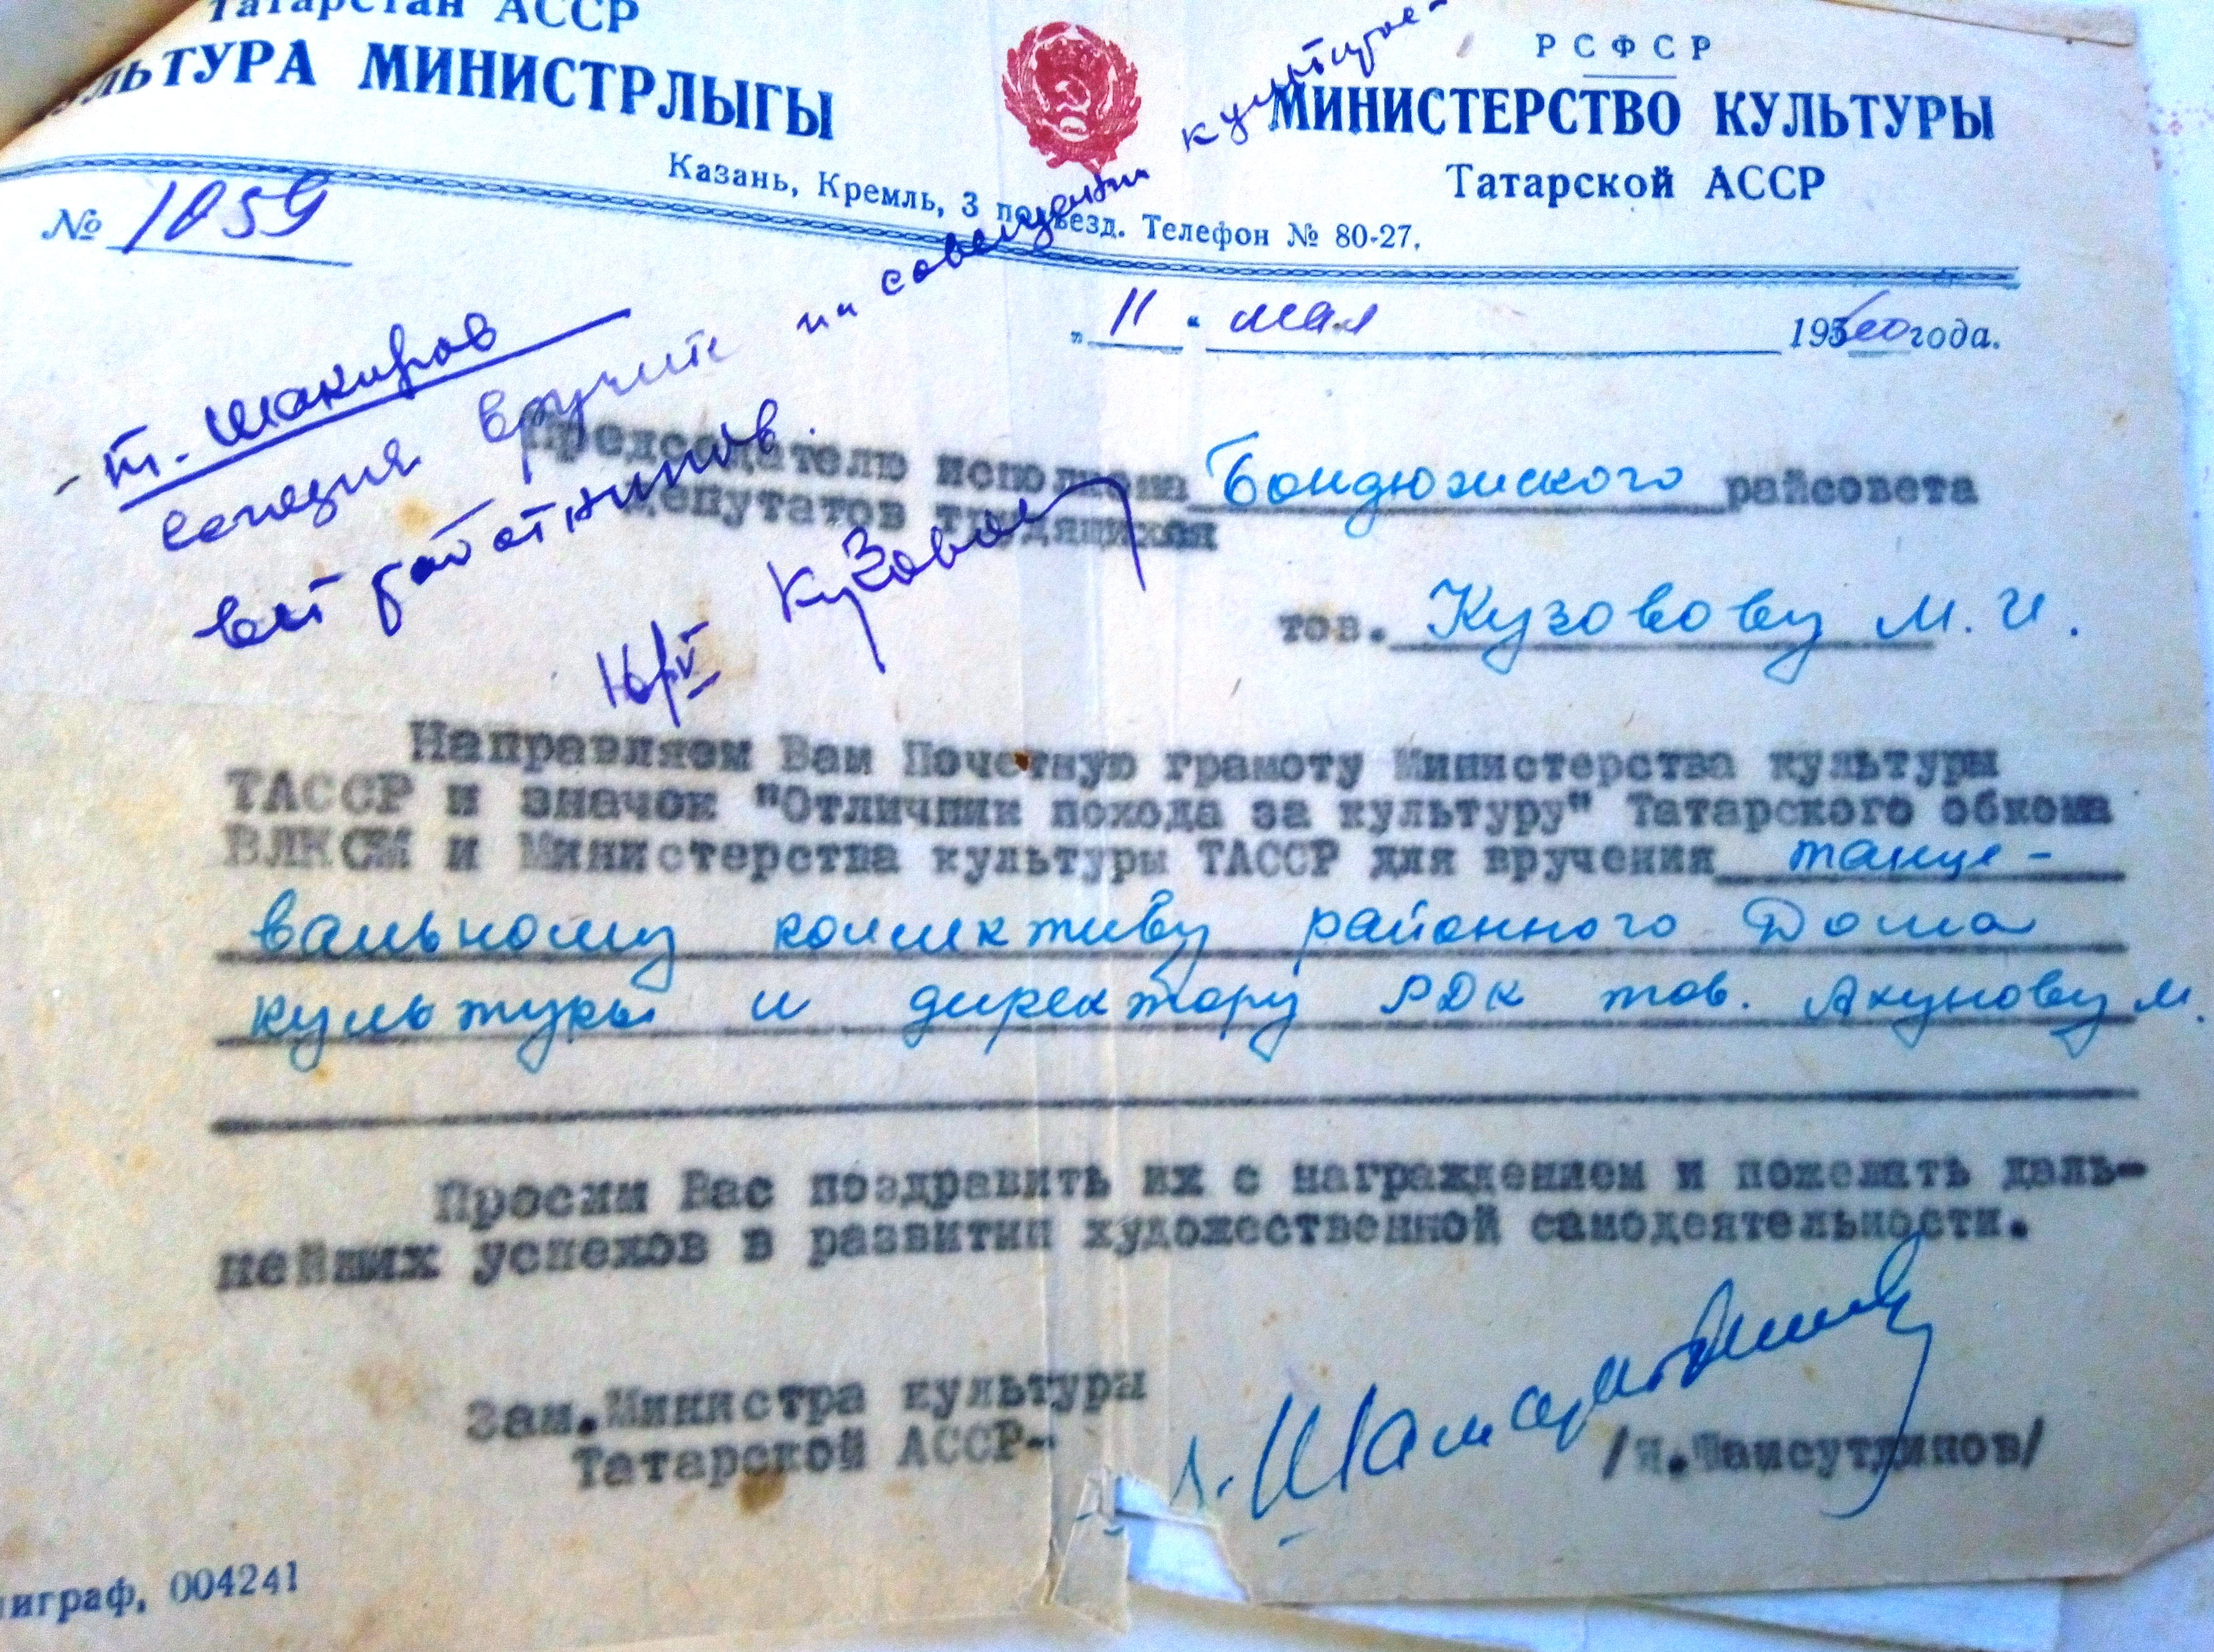 Татарстан АССР
КУЛЬТУРА МИНИСТРЛЫГЫ
РСФСР
МИНИСТЕРСТВО КУЛЬТУРЫ
Татарской АССР
Казань, Кремль, 3 подъезд. Телефон № 80-27.
№ 1059
„ 11 “ мая 1960 года.
т. Шакиров
вручите на совещании культурос-
вет работников.
Кузовов
16/V
Председателю исполкома Бондюжского райсовета
депутатов трудящихся
тов. Кузовову М. И.
Направляем Вам Почетную грамоту Министерства культуры
ТАССР и значок "Отличник похода за культуру" Татарского обкома
ВЛКСМ и Министерства культуры ТАССР для вручения танце-
вальному коллективу районного Дома
культуры и директору РДК тов. Ахунову М.
Просим Вас поздравить их с награждением и пожелать даль-
нейших успехов в развитии художественной самодеятельности.
Зам.Министра культуры
Татарской АССР-
/Шамсутдинов/
играф, 004241